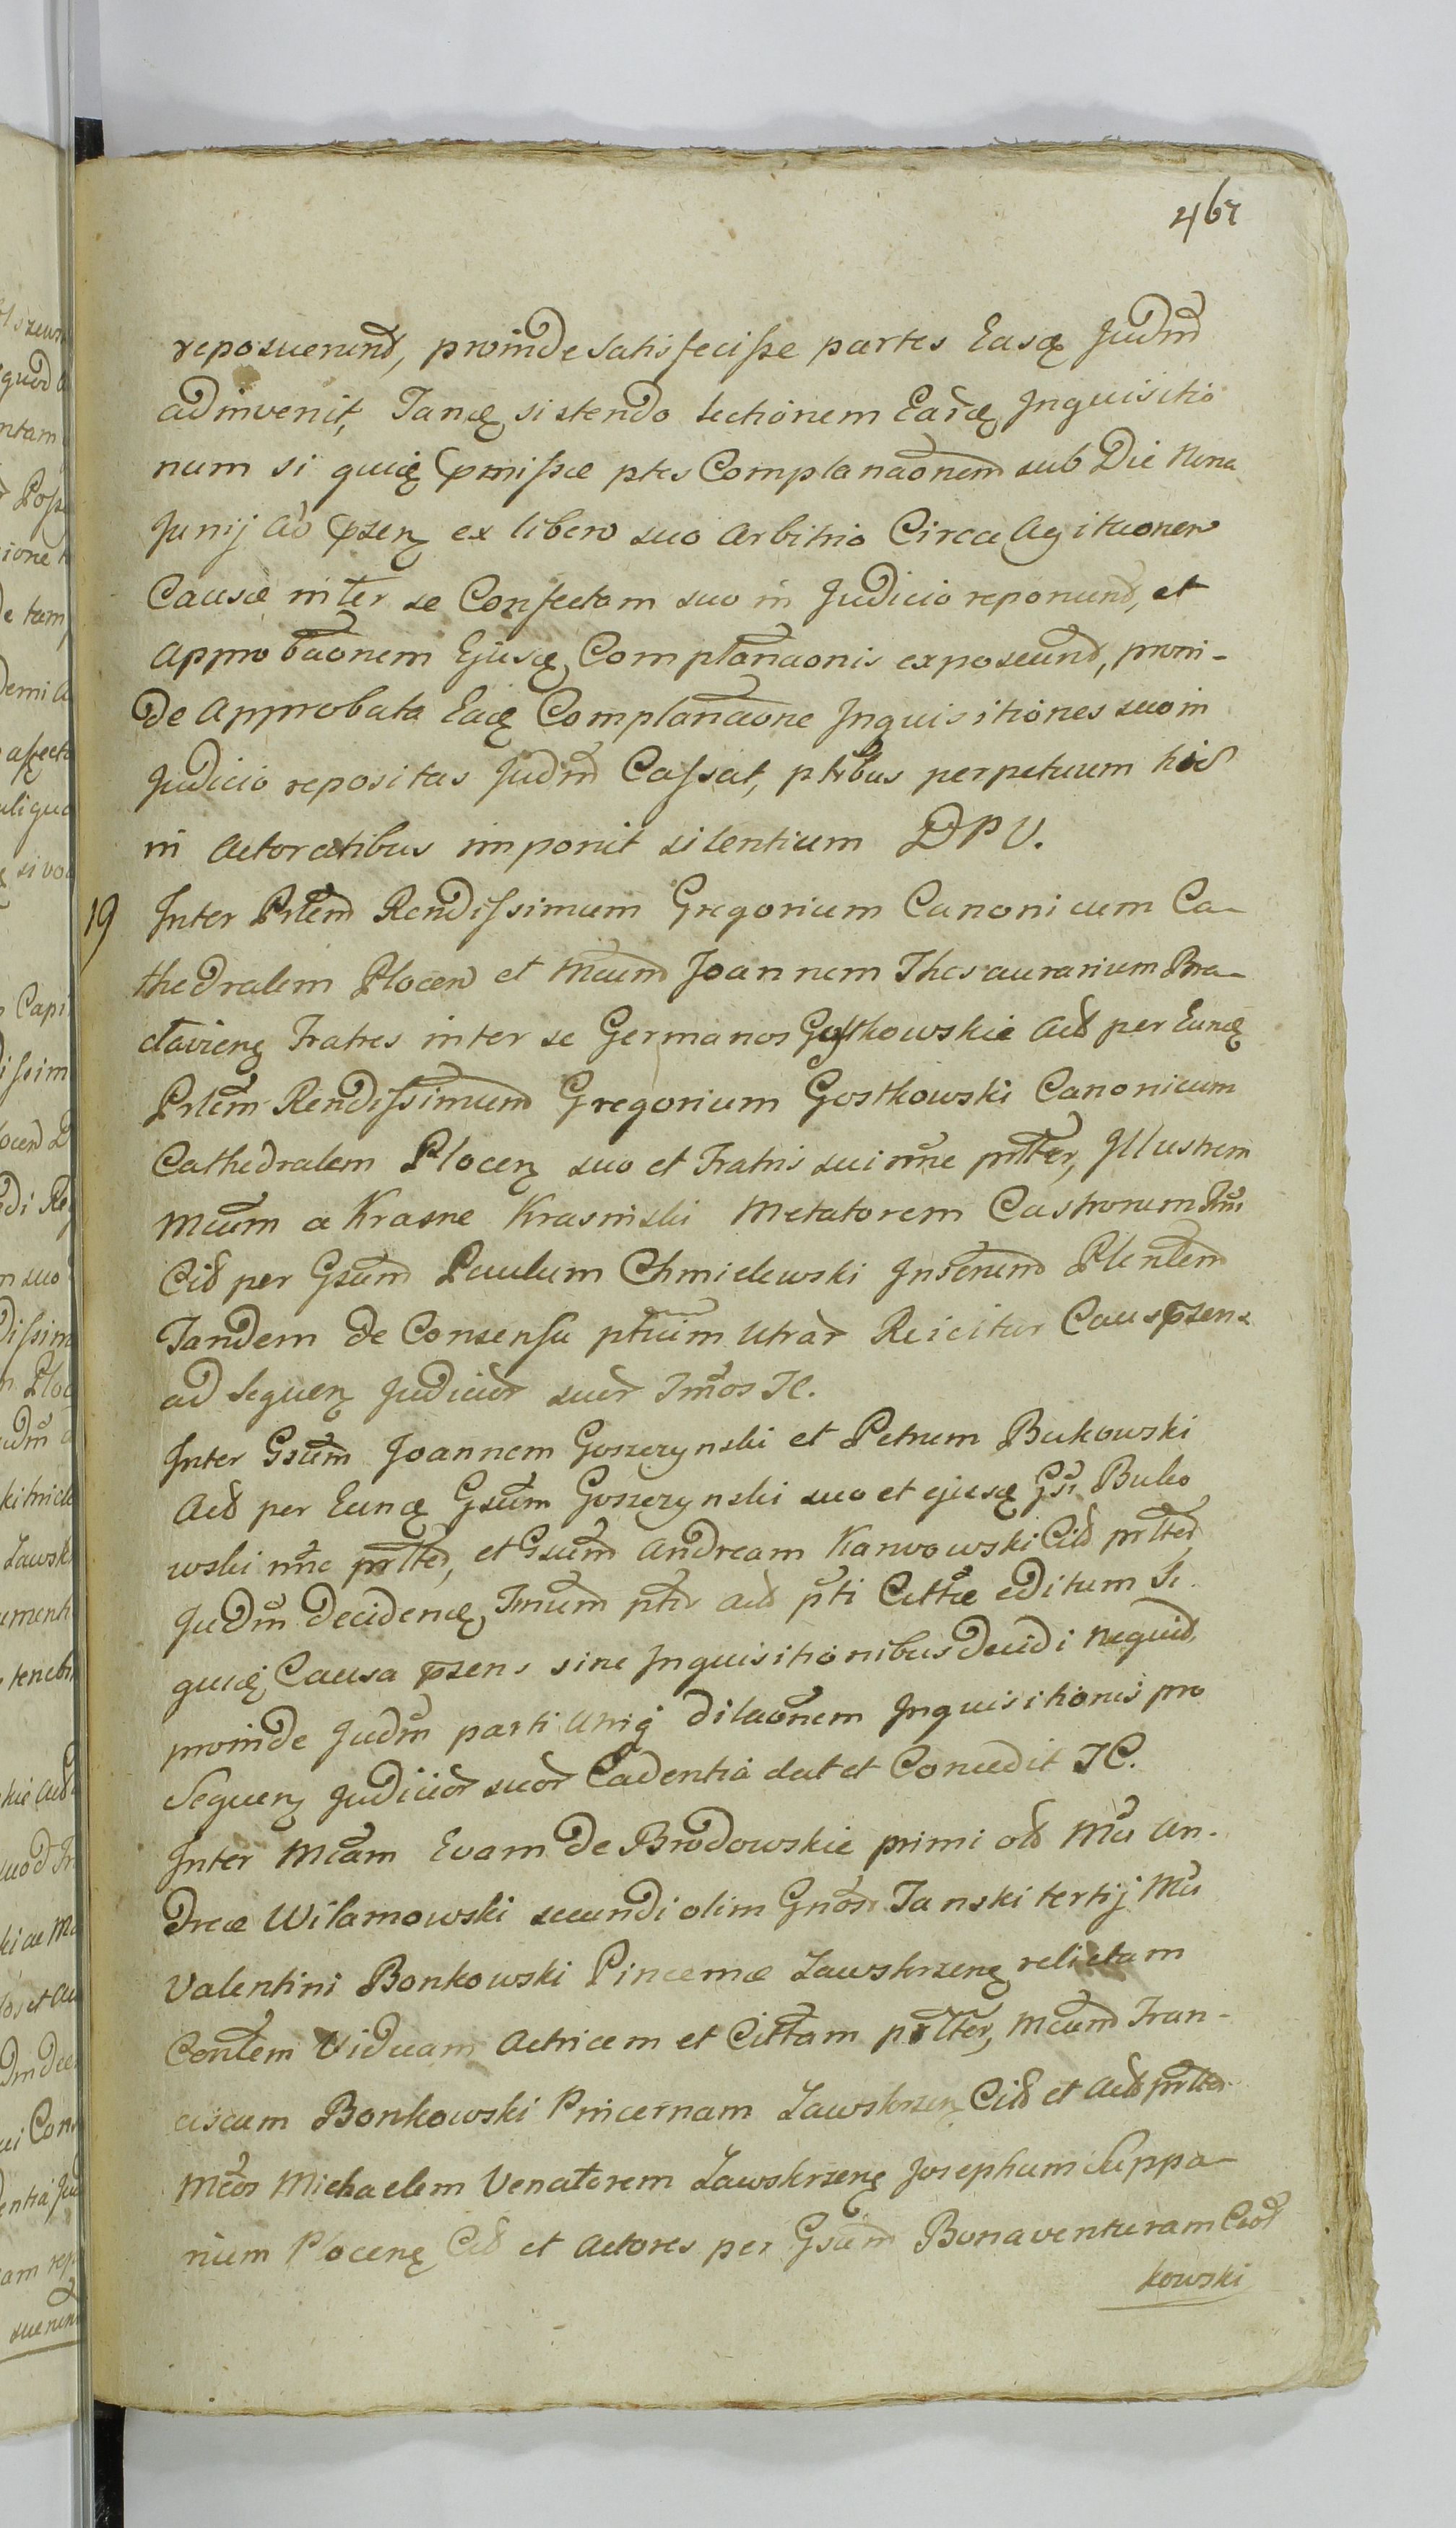 467
reposuerunt, proinde satisfecisse partes Easq Judm
adinvenit, Tanq sistendo lectionem Earq Inquisitio
num si quiq pmissæ ptes Complanaonem sub Die Nona
Junij Ao psen ex libero suo Arbitrio Circa Agitaonem
Causæ inter se Confectam suo in Judicio reponunt, et
Approbaonem Ejusq Complanaonis exposcunt, proin-
de Approbata Eaq Complanaone Inquisitiones suo in
Judicio repositas Judm Cassat, ptibus perpetuum hic
in Actoratibus imponit silentium DPV.
19 Inter Prlem Rendissimum Gregorium Canonicum Ca-
thedralem Plocen et Mcum Joannem Thesaurarium Bra-
clavienq Fratres inter se Germanos Gostkowskie Act per Eunq
Prlem Rendissimum Gregorium Gostkowski Canonicum
Cathedralem Plocen suo et Fratris sui nne prltter, Illustrem
Mcum a Krasne Krasinski Metatorem Castrorum
Cit per Gsum Paulum Chmielewski Plentem
Tandem de Consensu ptium utrar Reicitur Caus psens
ad sequen Judicior suor Tmos TC.
Inter Gsum Joannem Goszczynski et Petrum Bukowski
Act per Eunq Gsum Goszczynski suo et ejusq Gsi Buko
wski nne prltter, et Gsum Andream Karwowski Cit prltter
Judm decidenq Tmum ptis act pti Cittæ editum Si
quiq Causa psens sine Inquisitionibus decidi nequit,
proinde Judm parti utriq dilaonem Inquisitionis pro
Sequen Judicior suor Cadentia dat et Concedit TC.
Inter Mcam Evam de Brodowskie primi ol Mci An-
dreæ Wilamowski secundi olim Gnosi Janski tertij Mci
Valentini Bonkowski Pincernæ Zawskrzenq relictam
Conlem Viduam Actricem et Cittam prltter, Mcum Fran-
ciscum Bonkowski Pincernam Zawskrzen Cit et Act prltter
Mcos Michaelem Venatorem Zawskrzenq Josephum Suppa-
rium Plocenq Cit et Actores per Gsum Bonaventuram Czod
kowski